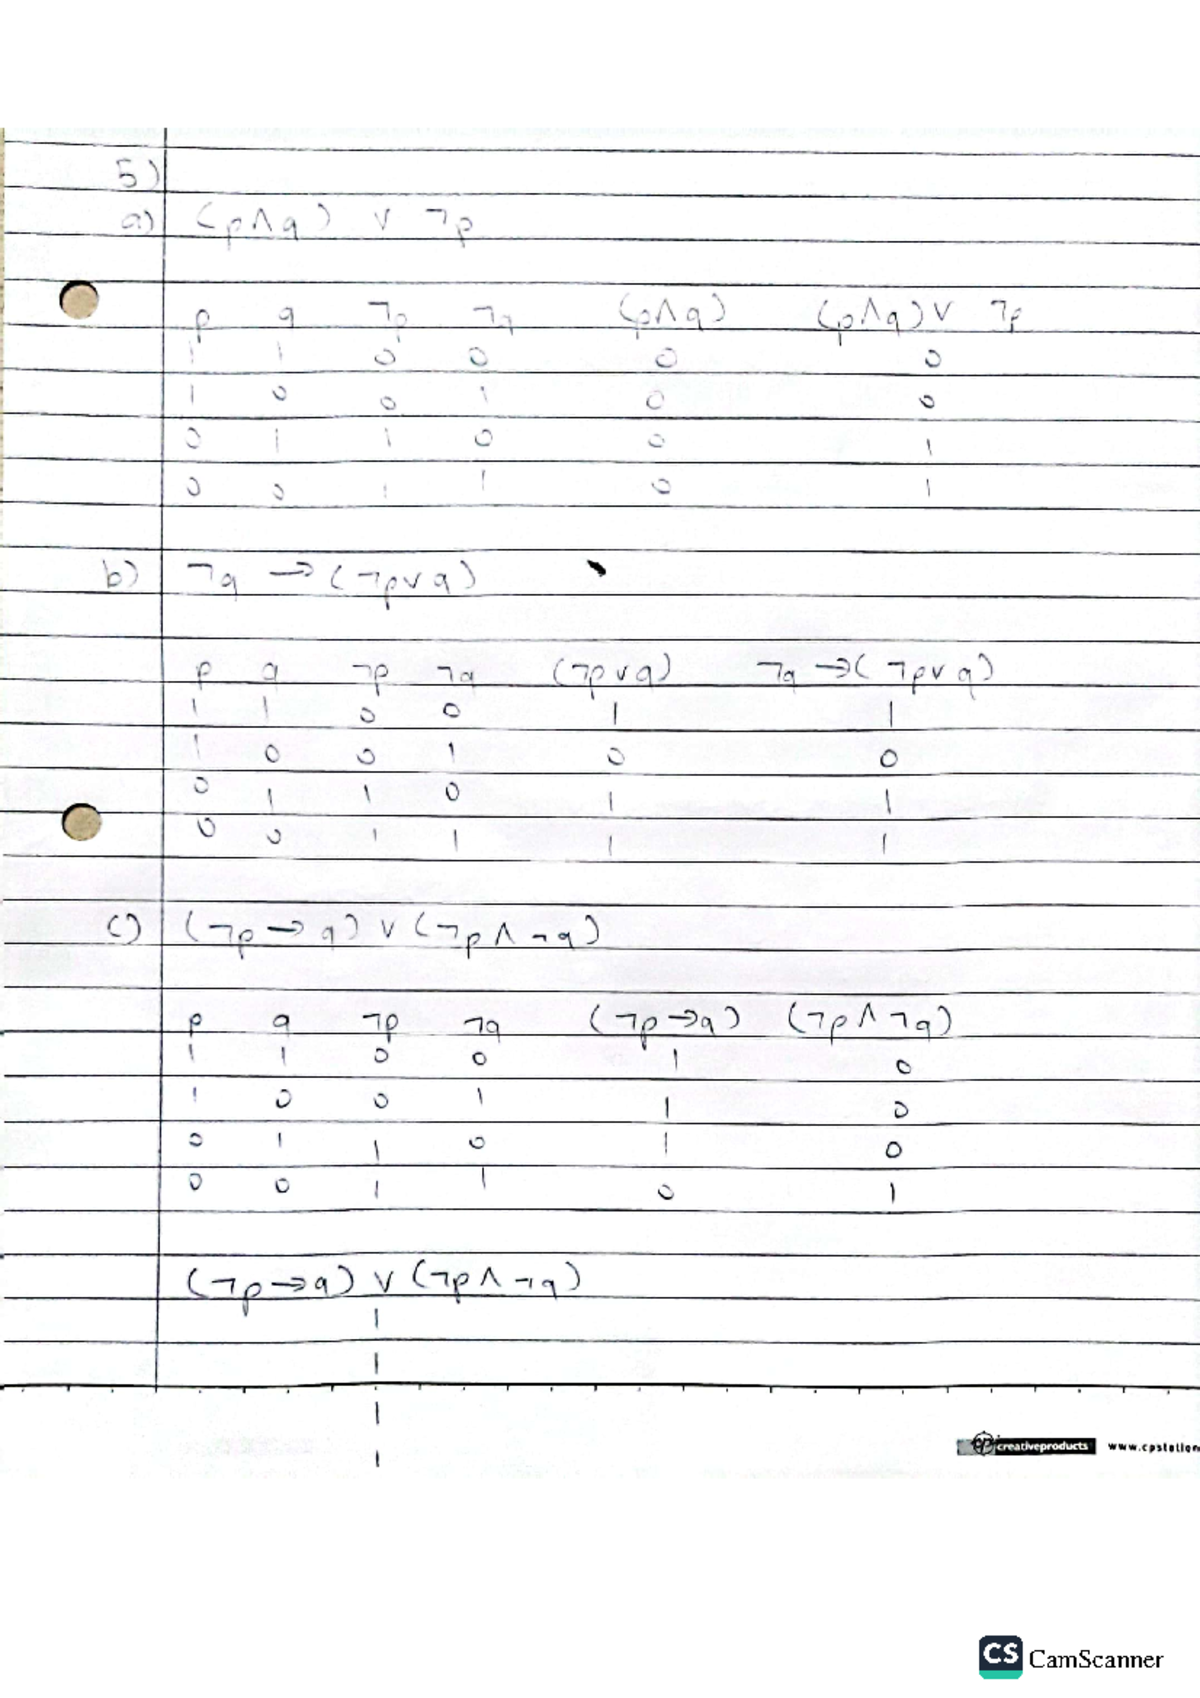 5)
a) (p∧q) ∨ ¬p
p q ¬p ¬q (p∧q) (p∧q)∨ ¬p
1 1 0 0 0 0
1 0 0 1 0 0
0 1 1 0 0 1
0 0 1 1 0 1
b) ¬q →(¬p∨q)
p q ¬p ¬q (¬p∨q) ¬q →(¬p∨q)
1 1 0 0 1 1
1 0 0 1 0 0
0 1 1 0 1 1
0 0 1 1 1 1
c) (¬p→q) ∨ (¬p∧¬q)
p q ¬p ¬q (¬p→q) (¬p∧¬q)
1 1 0 0 1 0
1 0 0 1 1 0
0 1 1 0 1 0
0 0 1 1 0 1
(¬p→q) ∨ (¬p∧¬q)
1
1
1
1
creativeproducts www.cpstation
CS CamScanner